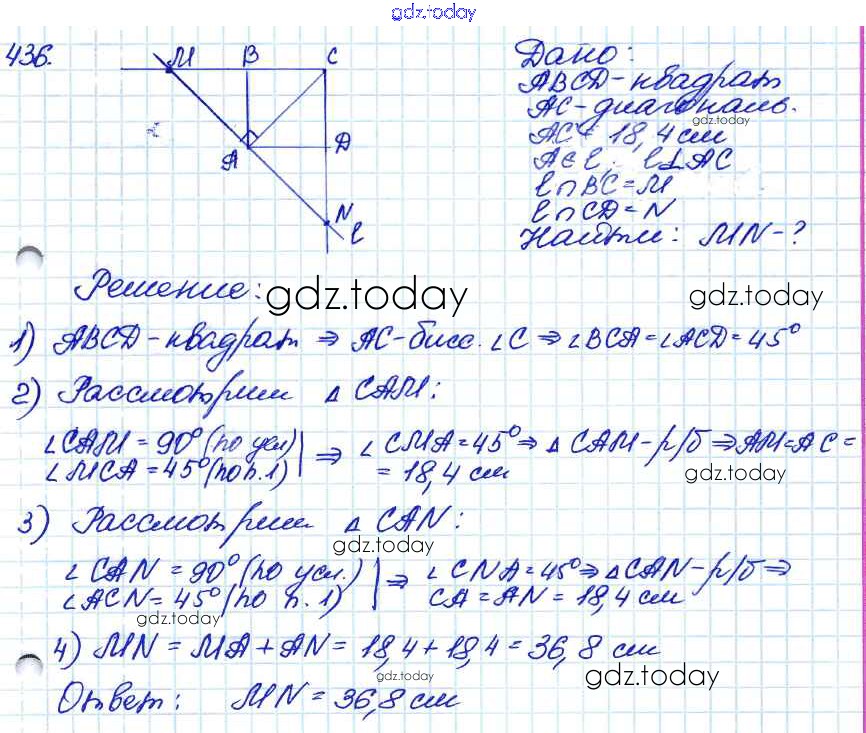 gdz.today
436.
M B C
A D
N
l
Дано:
ABCD-квадрат
AC-диагональ.
gdz.today
AC = 18,4 см
A∈l; l⊥AC
l∩BC=M
l∩CD=N
Найти: MN-?
Решение: gdz.today gdz.today
1) ABCD-квадрат ⇒ AC-бисс. ∠C ⇒ ∠BCA=∠ACD=45°
2) Рассмотрим △ CAM:
∠CAM=90° (по усл) | ⇒ ∠CMA=45° ⇒ △ CAM-р/б ⇒ AM=AC=
∠MCA=45° (по п.1) = 18,4 см
gdz.today
3) Рассмотрим △ CAN:
gdz.today
∠CAN=90° (по усл.) | ⇒ ∠CNA=45° ⇒ △CAN-р/б ⇒
∠ACN=45° (по п.1) CA=AN=18,4 см
gdz.today
4) MN = MA+AN = 18,4+18,4=36,8 см
gdz.today gdz.today
Ответ: MN=36,8 см